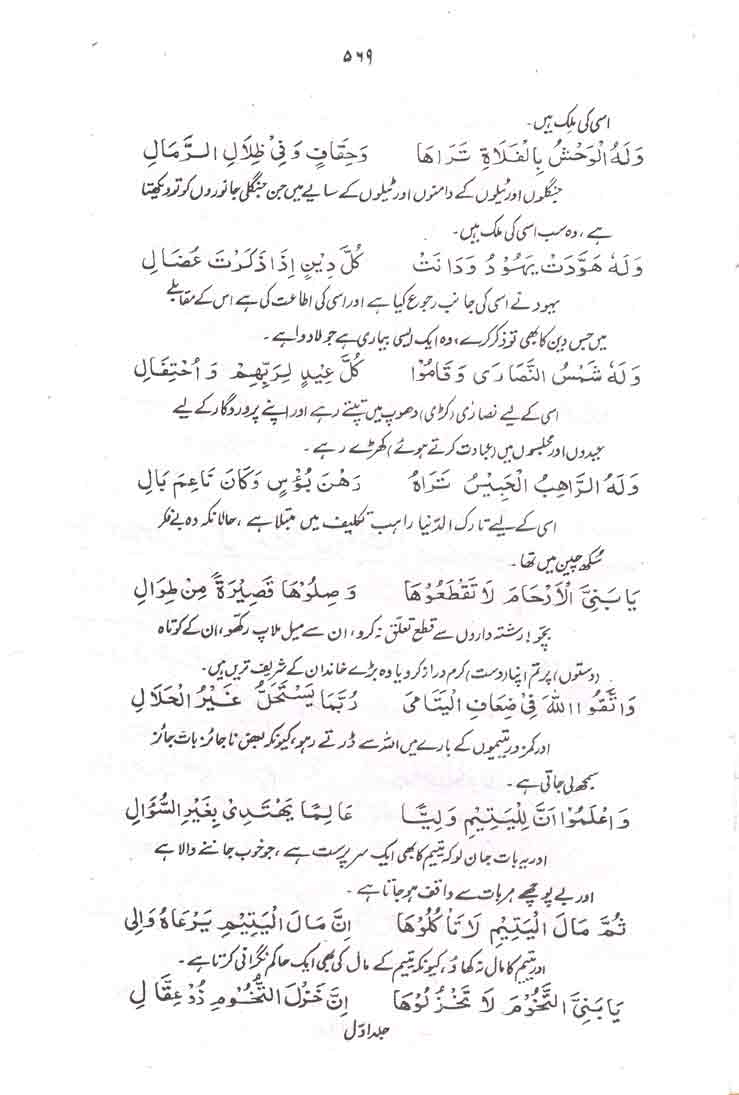 ۵۶۹
اسی کی مِلک ہیں۔
وَلَهُ الْوَحْشُ بِالْفَلَاةِ تَرَاهَا وَحِقَافٍ وَفِيْ ظِلَالِ الرِّمَالِ
جنگلوں اور ٹیلوں کے دامنوں اور ٹیلوں کے سایے میں جن جنگلی جانوروں کو تو دیکھتا
ہے، وہ سب اسی کی ملک ہیں۔
وَلَهٗ هَوَّدَتْ يَهُوْدُ وَدَانَتْ كُلَّ دِيْنٍ إِذَا ذَكَرْتَ عُضَالِ
یہود نے اسی کی جانب رجوع کیا ہے اور اسی کی اطاعت کی ہے اس کے مقابلے
میں جس دین کا بھی تو ذکر کرے، وہ ایک ایسی بیماری ہے جو لادوا ہے۔
وَلَهٗ شَمْسُ النَّصَارَى وَقَامُوْا كُلَّ عِيْدٍ لِرَبِّهِمْ وَاُحْتِفَالِ
اسی کے لیے نصاریٰ (کڑی) دھوپ میں تپتے رہے اور اپنے پروردگار کے لیے
عیدوں اور مجلسوں میں (عبادت کرتے ہوئے) کھڑے رہے۔
وَلَهُ الرَّاهِبُ الْحَبِيْسُ تَرَاهُ رَهْنَ بُؤْسٍ وَكَانَ نَاعِمَ بَالِ
اسی کے لیے تارک الدّنیا راہب تکلیف میں مبتلا ہے، حالانکہ وہ بے فکر
سُکھ چین میں تھا۔
يَا بَنِيَّ الْاَرْحَامَ لَا تَقْطَعُوْهَا وَصِلُوْهَا قَصِيْرَةً مِنْ طِوَالِ
بچّو! رشتہ داروں سے قطع تعلّق نہ کرو، ان سے میل ملاپ رکھّو، ان کے کوتاہ
(دستوں) پر تم اپنا (دست) کرم دراز کرو یا وہ بڑے خاندان کے شریف ترین ہیں۔
وَاتَّقُوا اللهَ فِيْ ضِعَافِ الْيَتَامٰى رُبَّمَا يَسْتَحَلُّ غَيْرُ الْحَلَالِ
اور کمزور یتیموں کے بارے میں اللہ سے ڈرتے رہو، کیونکہ بعض ناجائز بات جائز
سمجھ لی جاتی ہے۔
وَاعْلَمُوْا اَنَّ لِلْيَتِيْمِ وَلِيًّا عَالِمًا يَهْتَدِيْ بِغَيْرِ السُّؤَالِ
اور یہ بات جان لو کہ یتیم کا بھی ایک سرپرست ہے، جو خوب جاننے والا ہے
اور بے پوچھے ہر بات سے واقف ہو جاتا ہے۔
ثُمَّ مَالَ الْيَتِيْمِ لَا تَاْكُلُوْهَا اِنَّ مَالَ الْيَتِيْمِ يَرْعَاهُ وَالِى
اور یتیم کا مال نہ کھاؤ، کیونکہ یتیم کے مال کی بھی ایک حاکم نگرانی کرتا ہے۔
يَا بَنِيَّ التُّخُوْمَ لَا تَخْزُلُوْهَا اِنَّ خَزْلَ التُّخُوْمِ ذُوْ عِقَالِ
جلد اوّل